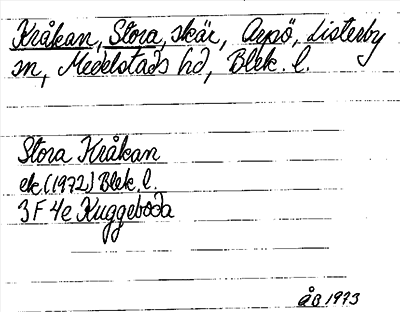 Kråkan, Stora, skär, Arpö, Listerby
sn, Medelstads hd, Blek. l.
Stora Kråkan
ek (1972) Blek. l.
3F 4e Kuggeboda
ÅB 1973